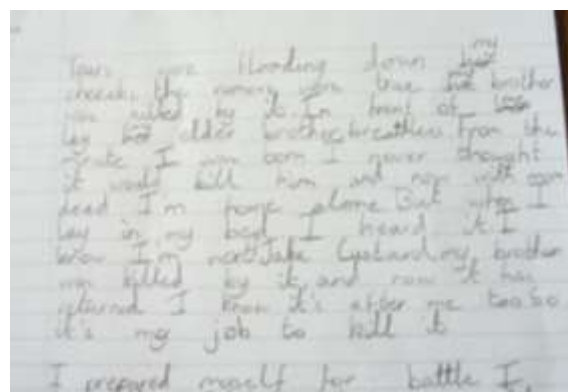 Tears were flooding down my
cheeks, the rumors were true my brother
was killed by it. In front of
lay older brother, breathless from the
minute I was born I never thought
it would kill him and now with mom
dead I'm home alone. But when I
lay in my bed I heard it I
know I'm next. Jake my brother
was killed by it, and now it has
returned I know it's after me too so
it's my job to kill it
I prepared myself for battle I,